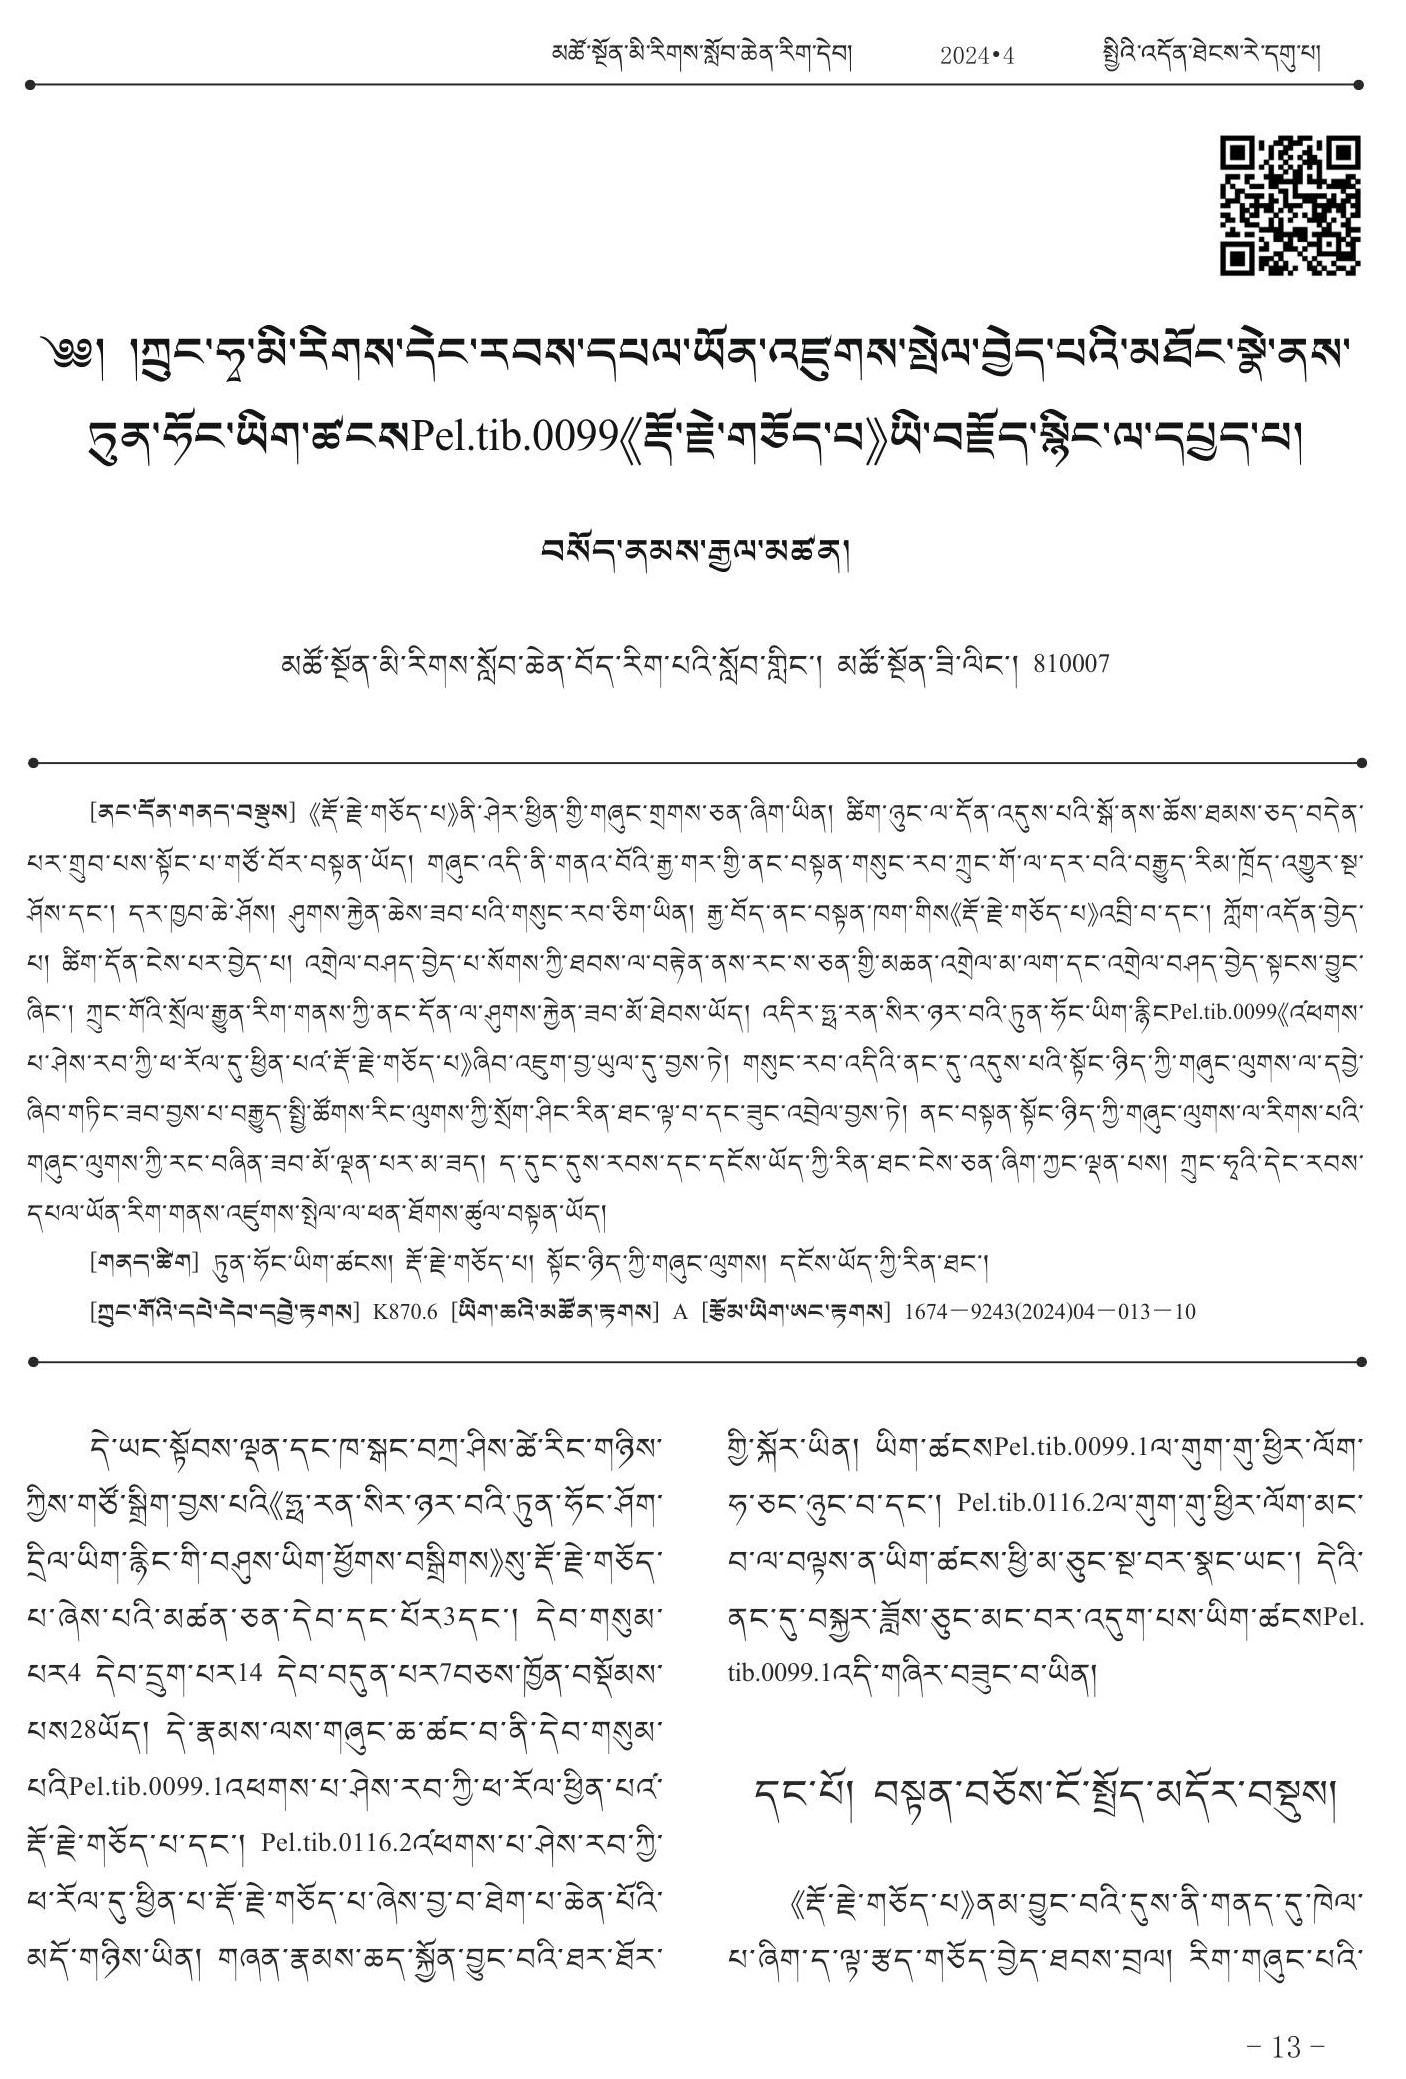 མཚོ་སྔོན་མི་རིགས་སློབ་ཆེན་རིག་དེབ། 2024•4 སྤྱིའི་འདོན་ཐེངས་རེ་དགུ་པ།
༄༅། །ཀྲུང་ཧྭ་མི་རིགས་དེང་རབས་དཔལ་ཡོན་འཛུགས་སྤེལ་བྱེད་པའི་མཐོང་སྣེ་ནས་
ཏུན་ཧོང་ཡིག་ཚངསPel.tib.0099《རྡོ་རྗེ་གཅོད་པ》ཡི་བརྗོད་སྙིང་ལ་དཔྱད་པ།
བསོད་ནམས་རྒྱལ་མཚན།
མཚོ་སྔོན་མི་རིགས་སློབ་ཆེན་བོད་རིག་པའི་སློབ་གླིང་། མཚོ་སྔོན་ཟི་ལིང་། 810007
[ནང་དོན་གནད་བསྡུས] 《རྡོ་རྗེ་གཅོད་པ》ནི་ཤེར་ཕྱིན་གྱི་གཞུང་གྲགས་ཅན་ཞིག་ཡིན། ཚིག་ཉུང་ལ་དོན་འདུས་པའི་སྒོ་ནས་ཆོས་ཐམས་ཅད་བདེན་
པར་གྲུབ་པས་སྟོང་པ་གཙོ་བོར་བསྟན་ཡོད། གཞུང་འདི་ནི་གནའ་བོའི་རྒྱ་གར་གྱི་ནང་བསྟན་གསུང་རབ་ཀྲུང་གོ་ལ་དར་བའི་བརྒྱུད་རིམ་ཁྲོད་འགྱུར་སྔ་
ཤོས་དང་། དར་ཁྱབ་ཆེ་ཤོས། ཤུགས་རྐྱེན་ཆེས་ཟབ་པའི་གསུང་རབ་ཅིག་ཡིན། རྒྱ་བོད་ནང་བསྟན་ཁག་གིས《རྡོ་རྗེ་གཅོད་པ》འབྲི་བ་དང་། ཀློག་འདོན་བྱེད་
པ། ཚིག་དོན་ངེས་པར་བྱེད་པ། འགྲེལ་བཤད་བྱེད་པ་སོགས་ཀྱི་ཐབས་ལ་བརྟེན་ནས་རང་ས་ཅན་གྱི་མཆན་འགྲེལ་མ་ལག་དང་འགྲེལ་བཤད་བྱེད་སྟངས་བྱུང་
ཞིང་། ཀྲུང་གོའི་སྲོལ་རྒྱུན་རིག་གནས་ཀྱི་ནང་དོན་ལ་ཤུགས་རྐྱེན་ཟབ་མོ་ཐེབས་ཡོད། འདིར་ཧྥ་རན་སིར་ཉར་བའི་ཏུན་ཧོང་ཡིག་རྙིངPel.tib.0099《འཕགས་
པ་ཤེས་རབ་ཀྱི་ཕ་རོལ་དུ་ཕྱིན་པའ་རྡོ་རྗེ་གཅོད་པ》ཞིབ་འཇུག་བྱ་ཡུལ་དུ་བྱས་ཏེ། གསུང་རབ་འདིའི་ནང་དུ་འདུས་པའི་སྟོང་ཉིད་ཀྱི་གཞུང་ལུགས་ལ་དབྱེ་
ཞིབ་གཏིང་ཟབ་བྱས་པ་བརྒྱུད་སྤྱི་ཚོགས་རིང་ལུགས་ཀྱི་སྲོག་ཤིང་རིན་ཐང་ལྟ་བ་དང་ཟུང་འབྲེལ་བྱས་ཏེ། ནང་བསྟན་སྟོང་ཉིད་ཀྱི་གཞུང་ལུགས་ལ་རིགས་པའི་
གཞུང་ལུགས་ཀྱི་རང་བཞིན་ཟབ་མོ་ལྡན་པར་མ་ཟད། ད་དུང་དུས་རབས་དང་དངོས་ཡོད་ཀྱི་རིན་ཐང་ངེས་ཅན་ཞིག་ཀྱང་ལྡན་པས། ཀྲུང་ཧྭའི་དེང་རབས་
དཔལ་ཡོན་རིག་གནས་འཛུགས་སྤེལ་ལ་ཕན་ཐོགས་ཚུལ་བསྟན་ཡོད།
[གནད་ཚིག] ཏུན་ཧོང་ཡིག་ཚངས། རྡོ་རྗེ་གཅོད་པ། སྟོང་ཉིད་ཀྱི་གཞུང་ལུགས། དངོས་ཡོད་ཀྱི་རིན་ཐང་།
[ཀྲུང་གོའི་དཔེ་དེབ་དབྱེ་རྟགས] K870.6 [ཡིག་ཆའི་མཚོན་རྟགས] A [རྩོམ་ཡིག་ཨང་རྟགས] 1674－9243(2024)04－013－10
དེ་ཡང་སྟོབས་ལྡན་དང་ཁ་སྒང་བཀྲ་ཤིས་ཚེ་རིང་གཉིས་
ཀྱིས་གཙོ་སྒྲིག་བྱས་པའི《ཧྥ་རན་སིར་ཉར་བའི་ཏུན་ཧོང་ཤོག་
དྲིལ་ཡིག་རྙིང་གི་བཤུས་ཡིག་ཕྱོགས་བསྒྲིགས》སུ་རྡོ་རྗེ་གཅོད་
པ་ཞེས་པའི་མཚན་ཅན་དེབ་དང་པོར3དང་། དེབ་གསུམ་
པར4 དེབ་དྲུག་པར14 དེབ་བདུན་པར7བཅས་ཁྱོན་བསྡོམས་
པས28ཡོད། དེ་རྣམས་ལས་གཞུང་ཆ་ཚང་བ་ནི་དེབ་གསུམ་
པའིPel.tib.0099.1འཕགས་པ་ཤེས་རབ་ཀྱི་ཕ་རོལ་ཕྱིན་པའ་
རྡོ་རྗེ་གཅོད་པ་དང་། Pel.tib.0116.2འཕགས་པ་ཤེས་རབ་ཀྱི་
ཕ་རོལ་དུ་ཕྱིན་པ་རྡོ་རྗེ་གཅོད་པ་ཞེས་བྱ་བ་ཐེག་པ་ཆེན་པོའི་
མདོ་གཉིས་ཡིན། གཞན་རྣམས་ཆད་སྐྱོན་བྱུང་བའི་ཐར་ཐོར་
གྱི་སྐོར་ཡིན། ཡིག་ཚངསPel.tib.0099.1ལ་གུག་གུ་ཕྱིར་ལོག་
ཧ་ཅང་ཉུང་བ་དང་། Pel.tib.0116.2ལ་གུག་གུ་ཕྱིར་ལོག་མང་
བ་ལ་བལྟས་ན་ཡིག་ཚངས་ཕྱི་མ་ཅུང་སྔ་བར་སྣང་ཡང་། དེའི་
ནང་དུ་བསྐྱར་ཟློས་ཅུང་མང་བར་འདུག་པས་ཡིག་ཚངསPel.
tib.0099.1འདི་གཞིར་བཟུང་བ་ཡིན།
དང་པོ། བསྟན་བཅོས་ངོ་སྤྲོད་མདོར་བསྡུས།
《རྡོ་རྗེ་གཅོད་པ》ནམ་བྱུང་བའི་དུས་ནི་གནད་དུ་ཁེལ་
པ་ཞིག་ད་ལྟ་རྩད་གཅོད་བྱེད་ཐབས་བྲལ། རིག་གཞུང་པའི་
– 13 –